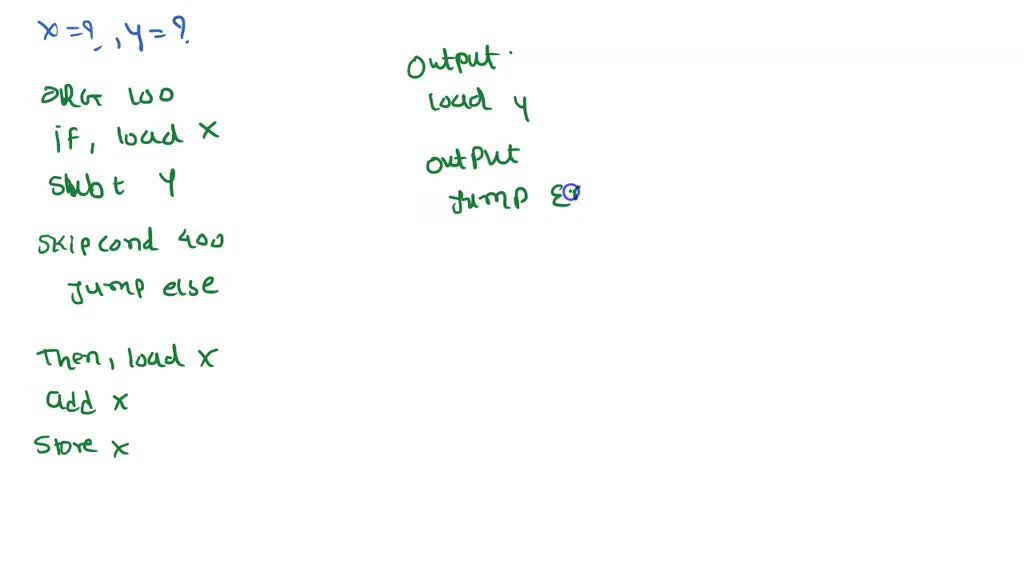 x=?, y=?
ORG 100
if, load x
Subt y
Skipcond 400
Jump else
Then, load x
add x
Store x
Output.
load y
output
Jump